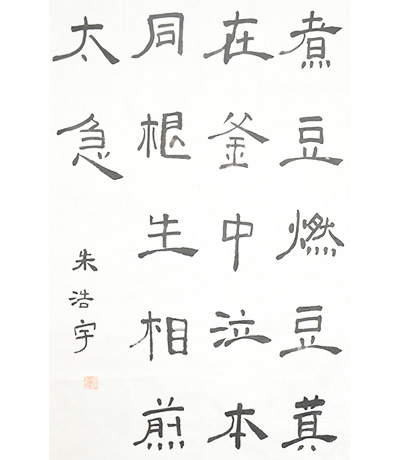 煮豆燃豆萁
在釜中泣本
同根生相煎
太急
朱浩宇